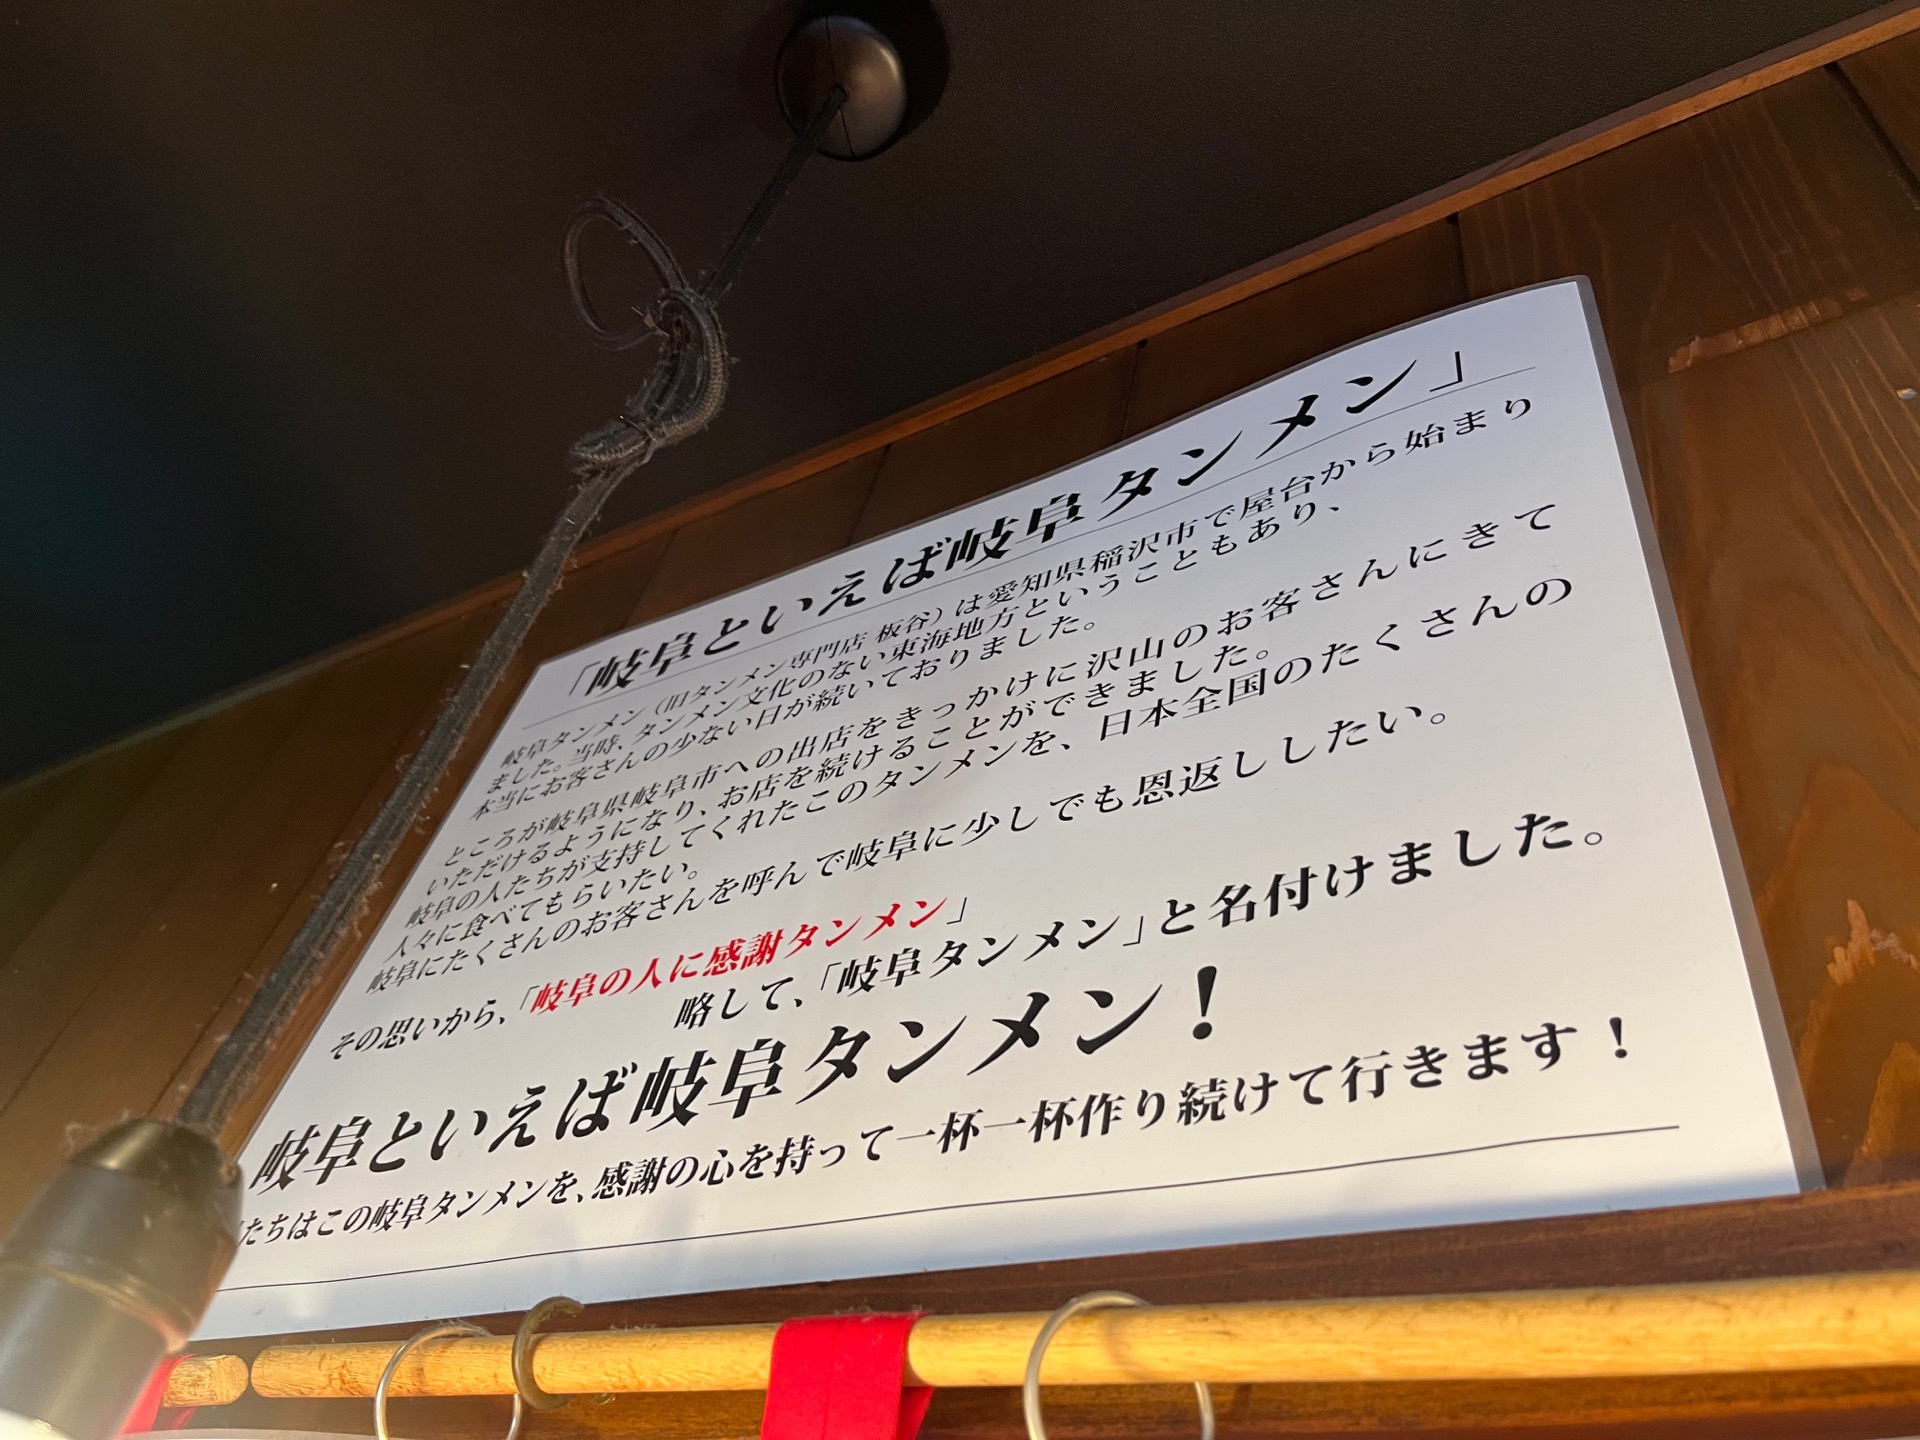 「岐阜といえば岐阜タンメン」
岐阜タンメン（旧タンメン専門店 板谷）は愛知県稲沢市で屋台から始まり
ました。当時、タンメン文化のない東海地方ということもあり、
本当にお客さんの少ない日が続いておりました。
ところが岐阜県岐阜市への出店をきっかけに沢山のお客さんにきて
いただけるようになり、お店を続けることができました。
岐阜の人たちが支持してくれたこのタンメンを、日本全国のたくさんの
人々に食べてもらいたい。
岐阜にたくさんのお客さんを呼んで岐阜に少しでも恩返ししたい。
その思いから、「岐阜の人に感謝タンメン」
略して、「岐阜タンメン」と名付けました。
岐阜といえば岐阜タンメン！
たちはこの岐阜タンメンを、感謝の心を持って一杯一杯作り続けて行きます！